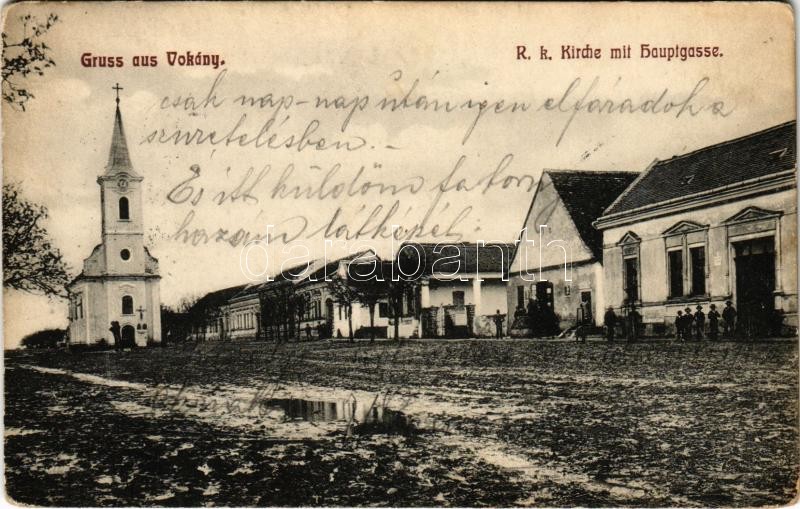 Gruss aus Vokány.
R. k. Kirche mit Hauptgasse.
csak nap-nap után igen elfáradok a
szüretelésben.-
És itt küldöm fatorny
hazám látképét.
darabanth